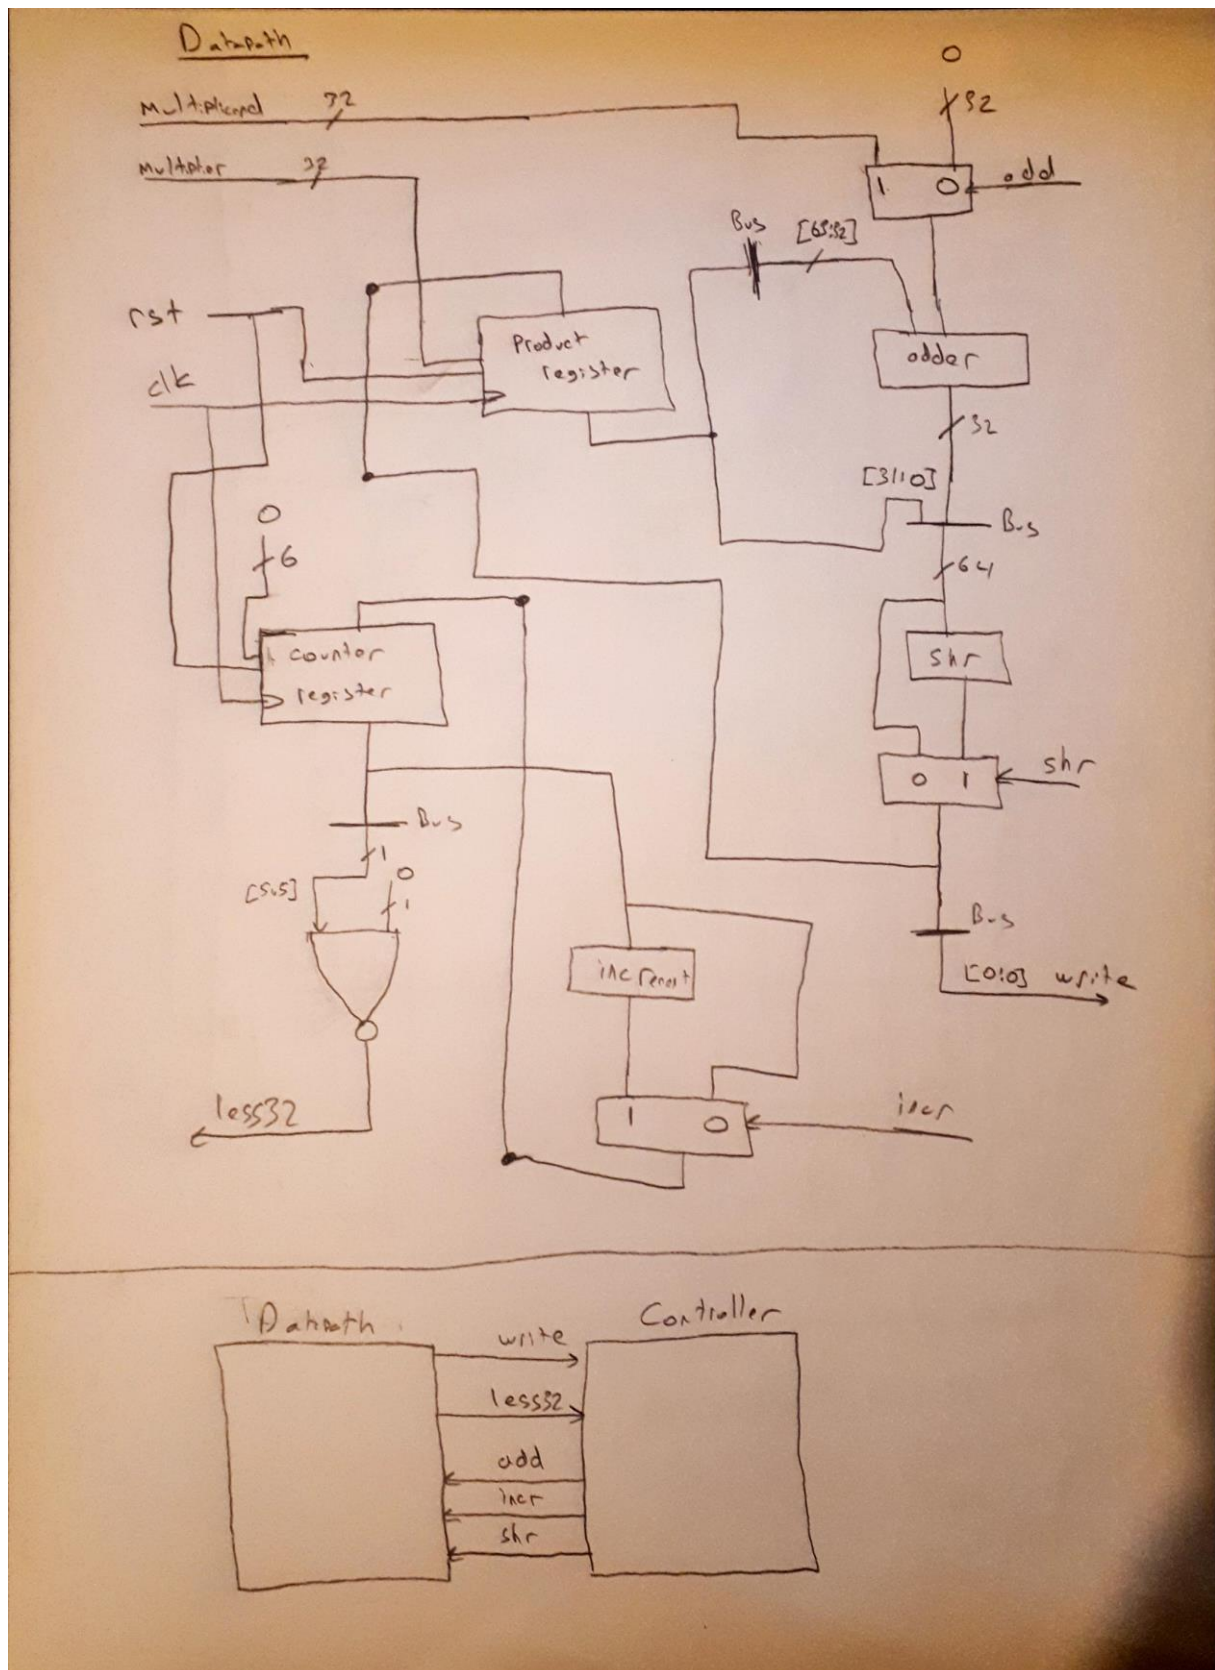 Datapath
0
Multiplicand 32
32
add
1 0
Multiplier 32
Bus [63:32]
rst
Product
register
adder
clk
32
[31:0]
Bus
0
6
64
counter
register
shr
0 1
shr
Bus
1
0
[5:5]
1
Bus
increment
[0:0] write
less32
1 0
incr
Datapath
Controller
write
less32
add
incr
shr